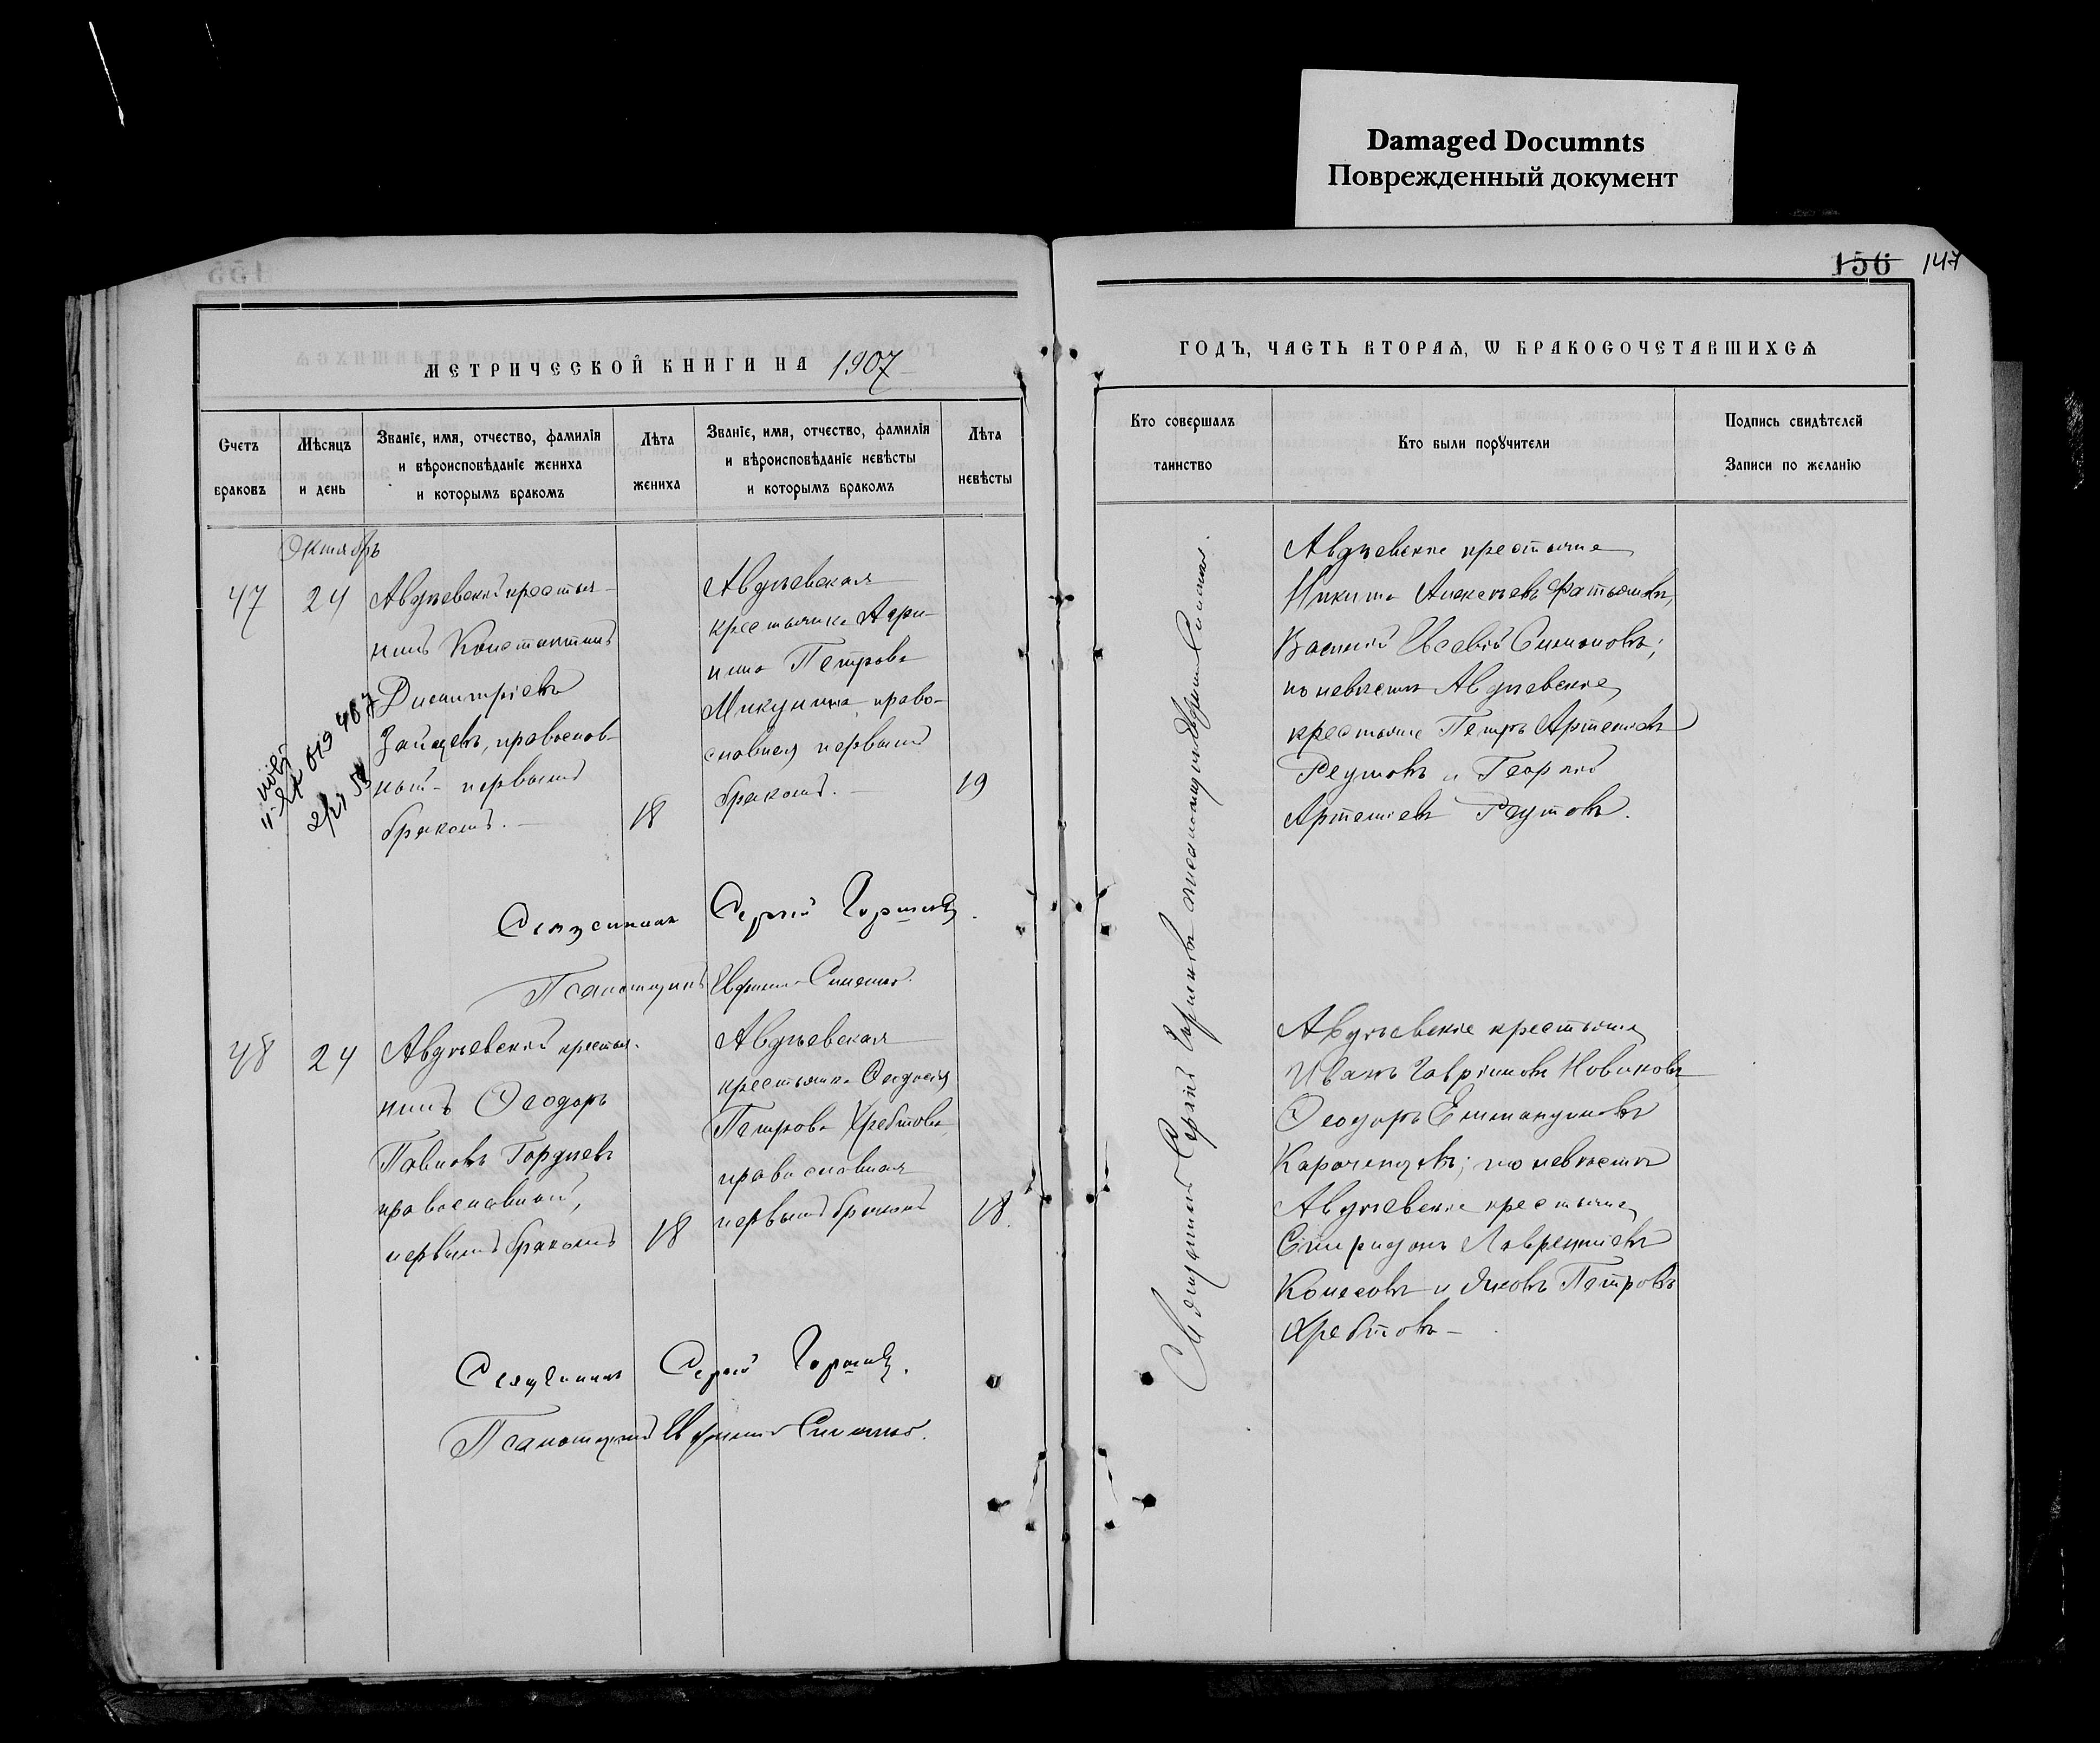 Damaged Documnts
Поврежденный документ
156 147
МЕТРИЧЕСКОЙ КНИГИ НА 1907
ГОДЪ, ЧАСТЬ ВТОРАѦ, Ѡ БРАКОСОЧЕТАВШИХСѦ
Счетъ
браковъ
Мѣсяцъ
и день
Званіе, имя, отчество, фамилія
и вѣроисповѣданіе жениха
и которымъ бракомъ
Лѣта
жениха
Званіе, имя, отчество, фамилія
и вѣроисповѣданіе невѣсты
и которымъ бракомъ
Лѣта
невѣсты
Кто совершалъ
таинство
Кто были поручители
Подпись свидѣтелей
Записи по желанію
Октябрь
47
24
Авдѣевскій крестья-
нинъ Константинъ
Димитріевъ
Зайцевъ, православ-
ный первымъ
бракомъ.
18
Авдѣевская
крестьянка
Петрова
Микулина, право-
славная первымъ
бракомъ.
19
Авдѣевскіе крестьяне
Никита Алексѣевъ Фатьяновъ,
Василій Симоновъ;
по невѣстѣ Авдѣевскіе
крестьяне Петръ Артемьевъ
Реутовъ и Георгій
Артемьевъ Реутовъ.
Священникъ Сергій Горшковъ.
Псаломщикъ
48
24
Авдѣевскій крестья-
нинъ Ѳеодоръ
Павловъ Гордѣевъ
православный,
первымъ бракомъ
18
Авдѣевская
крестьянка Ѳеодосія
Петрова Хребтова
православная
первымъ бракомъ
18.
Авдѣевскіе крестьяне
Иванъ Гавриловъ Новиковъ
Ѳеодоръ
по невѣстѣ
Авдѣевскіе крестьяне
Спиридонъ Лаврентіевъ
Колесовъ и Яковъ Петровъ
Хребтовъ
Священникъ Сергій Горшковъ.
Псаломщикъ
Священникъ Сергій Горшковъ псаломщикъ